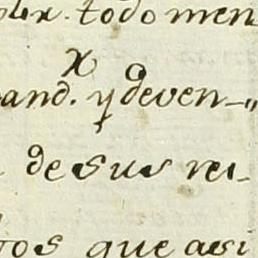 todo men
and. y deven-"
de sus rei-
tos que assi